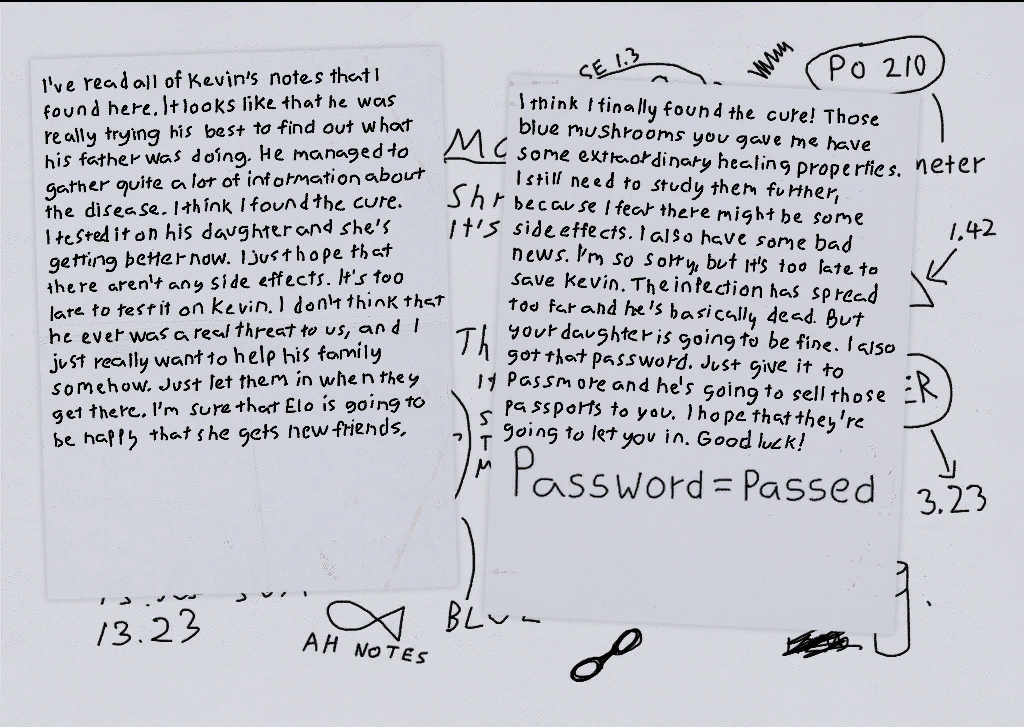 I've read all of Kevin's notes that I
found here. It looks like that he was
really trying his best to find out what
his father was doing. He managed to
gather quite a lot of information about
the disease. I think I found the cure.
I tested it on his daughter and she's
getting better now. I just hope that
there aren't any side effects. It's too
late to test it on Kevin. I don't think that
he ever was a real threat to us, and I
just really want to help his family
somehow. Just let them in when they
get there. I'm sure that Elo is going to
be happy that she gets new friends.
I think I finally found the cure! Those
blue mushrooms you gave me have
some extraordinary healing properties.
I still need to study them further,
because I fear there might be some
side effects. I also have some bad
news. I'm so sorry, but it's too late to
save Kevin. The infection has spread
too far and he's basically dead. But
your daughter is going to be fine. I also
got that password. Just give it to
Passmore and he's going to sell those
passports to you. I hope that they're
going to let you in. Good luck!
Password = Passed
SE 1.3
Po 210
meter
1.42
Shr
It's
Th
ER
3.23
13.23
AH NOTES